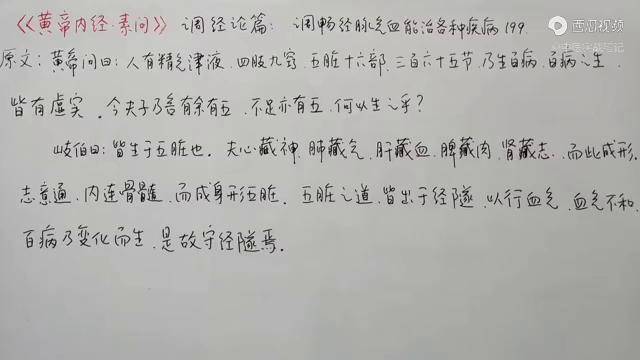 《《黄帝内经·素问》》 调经论篇：调畅经脉气血能治各种疾病199.
西瓜视频
原文：黄帝问曰：人有精气津液，四肢九窍，五脏十六部，三百六十五节，乃生百病，百病之生，
皆有虚实。今夫子乃言有余有五，不足亦有五，何以生之乎？
岐伯曰：皆生于五脏也。夫心藏神，肺藏气，肝藏血，脾藏肉，肾藏志，而此成形。
志意通，内连骨髓，而成身形五脏。五脏之道，皆出于经隧，以行血气，血气不和，
百病乃变化而生，是故守经隧焉。